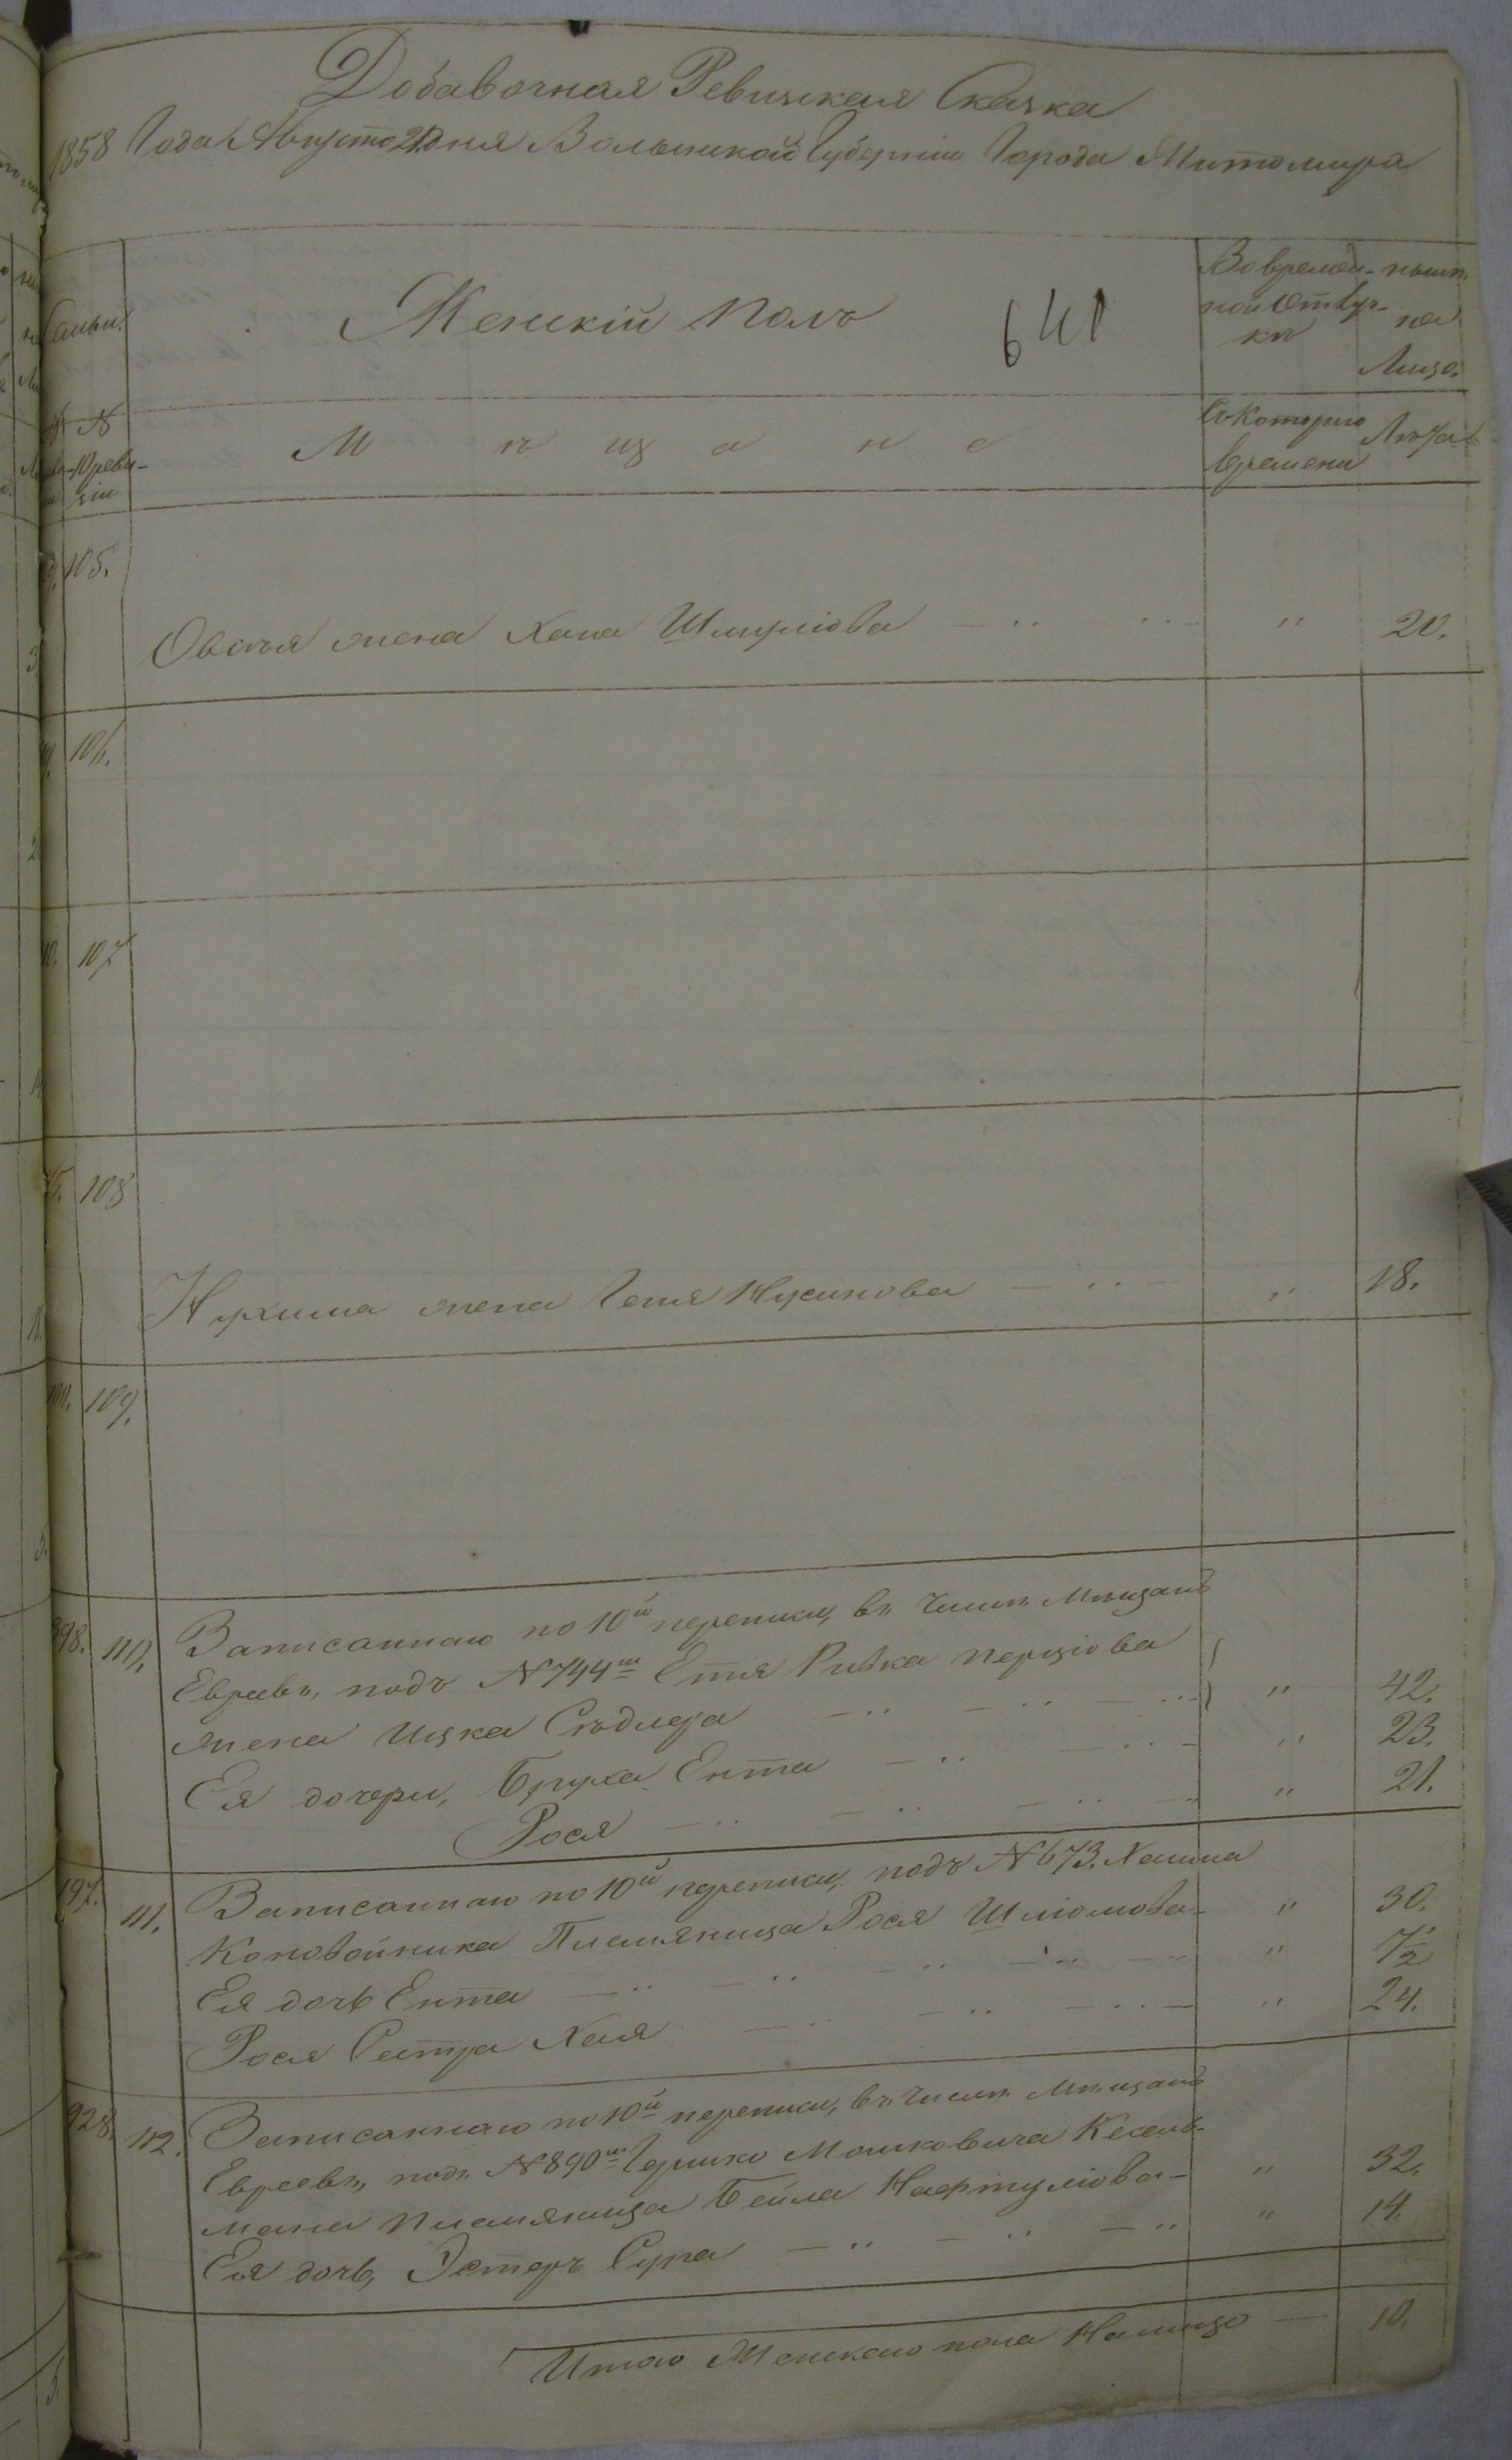 Добавочная Ревизская Сказка
1858 Года Августа 20 дня Волынской Губерніи Города Житомира
Семьи.
Женскій полъ
641
Во времен-
ной отлуч-
кѣ
нынѣ
на
Лицо.
№
10 реви-
зіи
М ѣ щ а н е
Съ котораго
времени
Лѣта
105.
Овсѣя жена Хана Шмулiова " 20.
106.
107
108
Нухима жена Гитля Нусинова " 18.
109.
110. Записаннаго по 10й переписи, въ числѣ Мѣщанъ
Евреевъ, подъ №744мъ Етля Ривка Перціова
жена Ицка Сѣдлера " 42.
Ея дочери, Бруха Ента " 23.
Рося " 21.
197. 111. Записаннаго по 10й переписи, подъ №673. Хаима
Коновойника Племяница Рося Шліомова " 30.
Ея дочь Ента " 1/2
Рося Сестра Хая " 24.
928. 112. Записаннаго по 10й переписи, въ числѣ Мѣщанъ
Евреевъ, подъ №890мъ Гершко Мошковича Кесель-
мана племяница Бейла Нафтулiова " 32.
Ея дочь, Эстеръ Сура " 14.
Итого Женскаго пола Налицо 10.